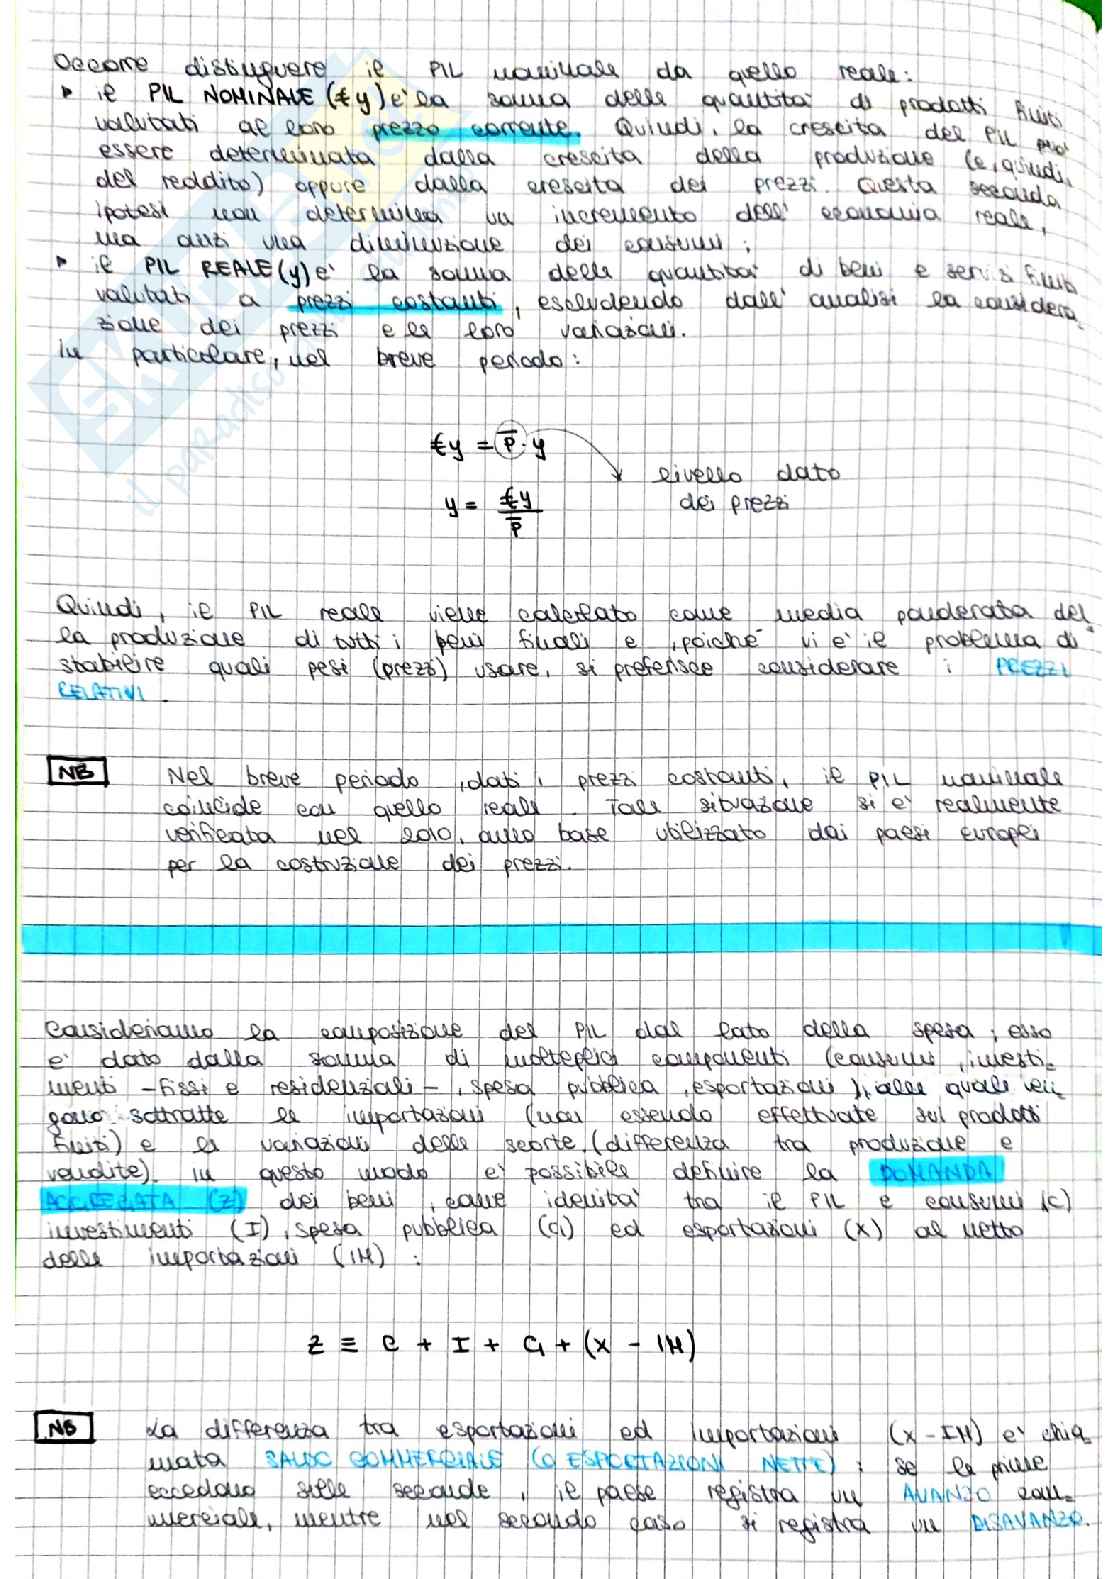 Occorre distinguere il PIL nominale da quello reale:
▸ il PIL NOMINALE (€y) è la somma delle quantità di prodotti finiti
valutati al loro prezzo corrente. Quindi, la crescita del PIL può
essere determinata dalla crescita della produzione (e, quindi,
del reddito) oppure dalla crescita dei prezzi. Questa seconda
ipotesi non determina un incremento dell'economia reale,
ma anzi una diminuzione dei consumi;
▸ il PIL REALE (y) è la somma delle quantità di beni e servizi finiti
valutati a prezzi costanti, escludendo dall'analisi la considera
zione dei prezzi e le loro variazioni.
In particolare, nel breve periodo:
€y = P̅ · y
livello dato
y = €y / P̅
dei prezzi
Quindi, il PIL reale viene calcolato come media ponderata del
la produzione di tutti i beni finali e, poiché vi è il problema di
stabilire quali pesi (prezzi) usare, si preferisce considerare i PREZZI
RELATIVI.
NB Nel breve periodo, dati i prezzi costanti, il PIL nominale
coincide con quello reale. Tale situazione si è realmente
verificata nel 2010, anno base utilizzato dai paesi europei
per la costruzione dei prezzi.
Consideriamo la composizione del PIL dal lato della spesa; esso
è dato dalla somma di molteplici componenti (consumi, investi-
menti - fissi e residenziali -, spesa pubblica, esportazioni), alle quali ven
gono sottratte le importazioni (non essendo effettuate sui prodotti
finiti) e le variazioni delle scorte (differenza tra produzione e
vendite). In questo modo è possibile definire la DOMANDA
AGGREGATA (Z) dei beni, come identità tra il PIL e consumi (C)
investimenti (I), spesa pubblica (G) ed esportazioni (X) al netto
delle importazioni (IM):
Z ≡ C + I + G + (X - IM)
NB La differenza tra esportazioni ed importazioni (X - IM) è chia
mata SALDO COMMERCIALE (O ESPORTAZIONI NETTE): se le prime
eccedono sulle seconde, il paese registra un AVANZO com-
merciale, mentre nel secondo caso si registra un DISAVANZO.